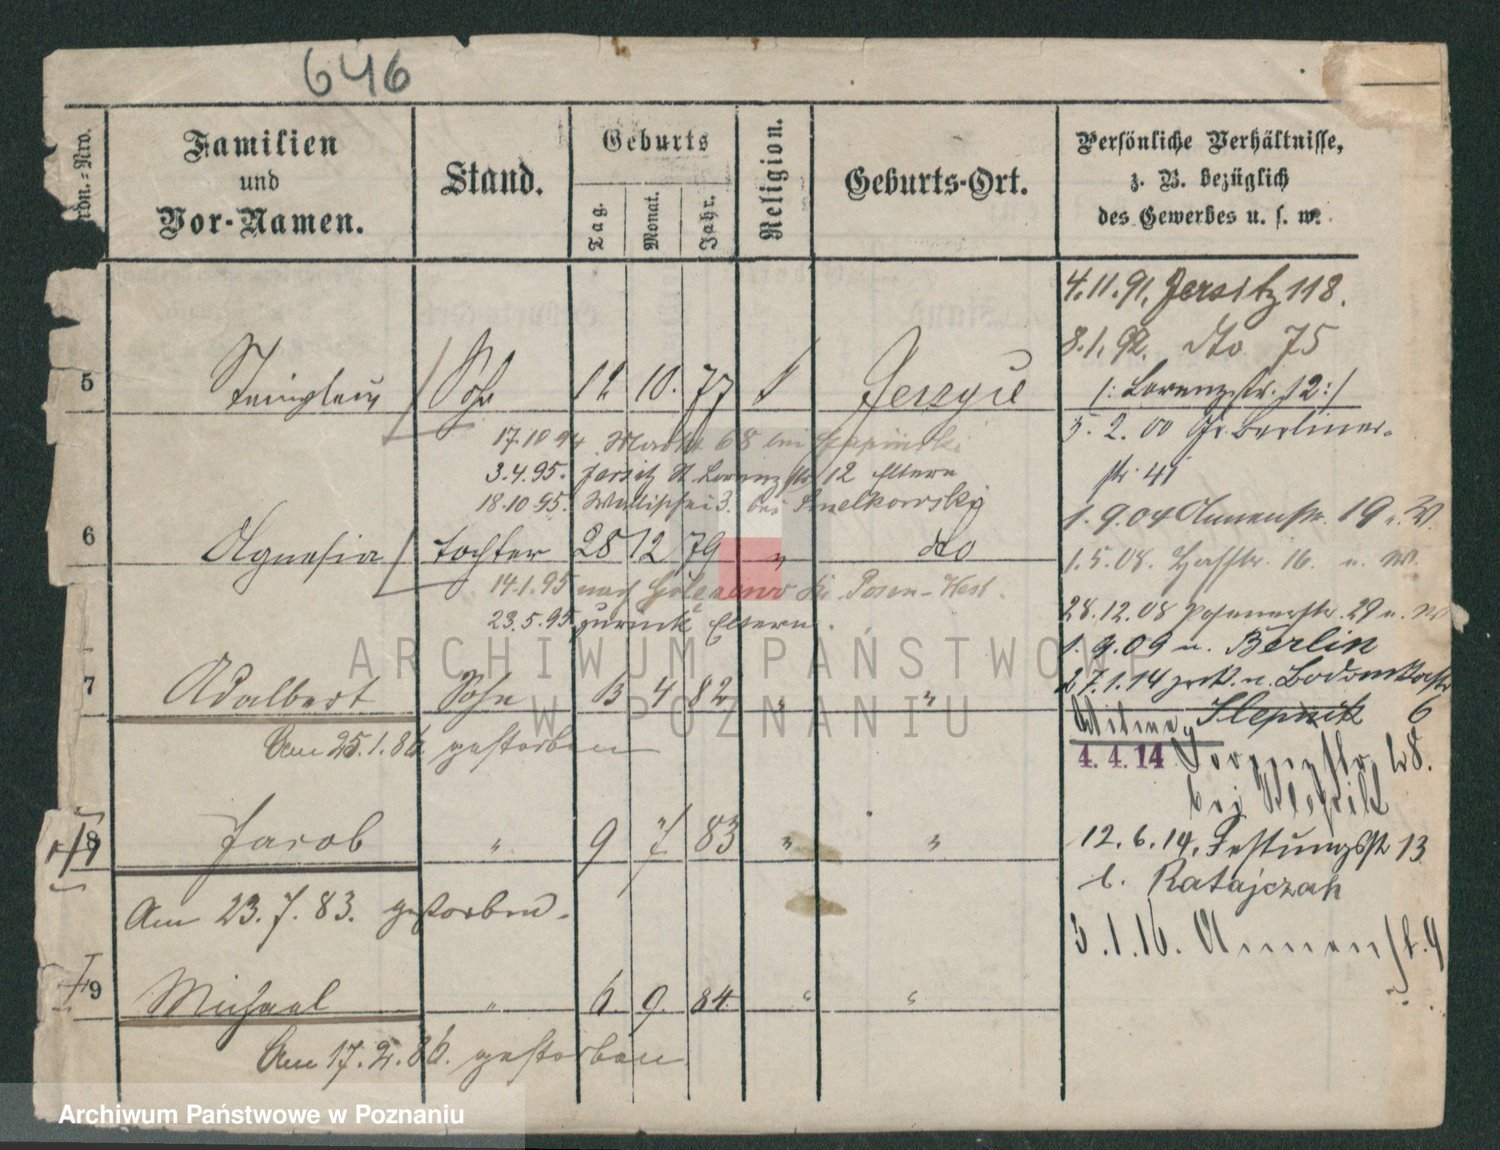 646
Ordn.-Nro.
Familien
und
Vor-Namen.
Stand.
Geburts
Tag.
Monat.
Jahr.
Religion.
Geburts-Ort.
Persönliche Verhältnisse,
z. B. bezüglich
des Gewerbes u. s. w.
4.11.91. Jersitz 118.
8.1.92. dto 75
5 Sohn 12 10. 77
/: Lorenzstr. 12 :/
17.10 94 Markt 68 bei
5. 2. 00 Gr. Berliner-
3.4.95. Jersitz St. Lorenzstr. 12 Eltern
str. 41
18.10.95. Wallischei 3. bei
1. 9. 04 Annenstr. 19 u. W.
6 Agnesia Tochter 28 12 79 " dto
1.5.08. 16. u. W.
14.1.95 nach Posen-West.
23.5.95 zurück Eltern.
28.12.08 Posenerstr. 29 u. W
1.9.09 n. Berlin
7 Adalbert Sohn 13 4 82 " "
27.1.14 zrck. n.
Witwe Slepnik 6
Am 25.1.86. gestorben
4. 4. 14 28.
bei
8 Jacob " 9 7 83 " "
12.6.14. Festungsstr 13
b. Ratajczak
Am 23. 7. 83. gestorben.
3.1.16. Annenstr. 9
9 Michael " 6. 9. 84. " "
Am 17. 2. 86. gestorben
ARCHIWUM PAŃSTWOWE
W POZNANIU
Archiwum Państwowe w Poznaniu